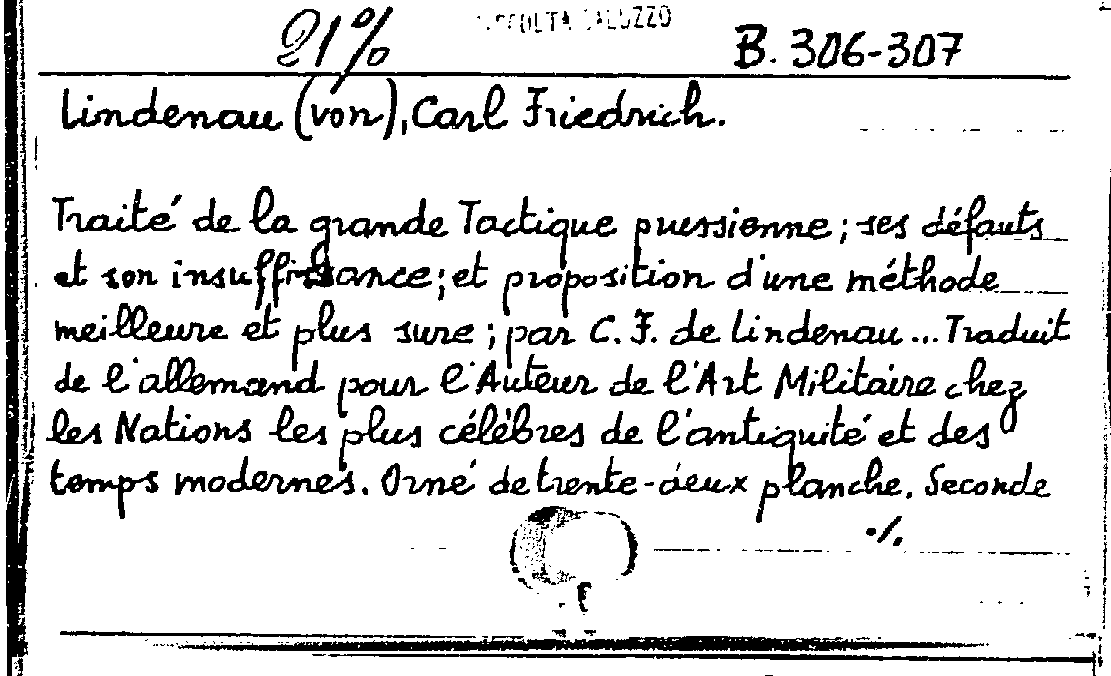 21% RACCOLTA SALUZZO B. 306-307
Lindenau (von), Carl Friedrich.
Traité de la grande Tactique prussienne; ses défauts
et son insuffissance; et proposition d'une méthode
meilleure et plus sure; par C. F. de Lindenau... Traduit
de l'allemand pour l'Auteur de l'Art Militaire chez
les Nations les plus célèbres de l'antiquité et des
temps modernes. Orné de trente-deux planche. Seconde
./.